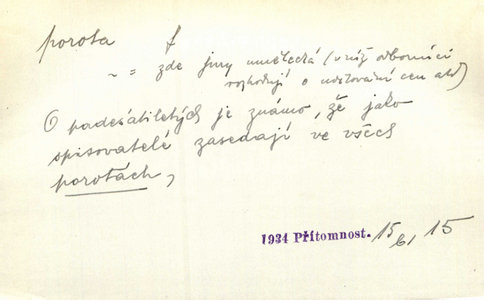 porota f
~ = zde jury umělecká (v níž odborníci
rozhodují o udělování cen atd)
O padesátiletých je známo, že jako
spisovatelé zasedají ve všech
porotách,
1934 Přítomnost. 15/6, 15